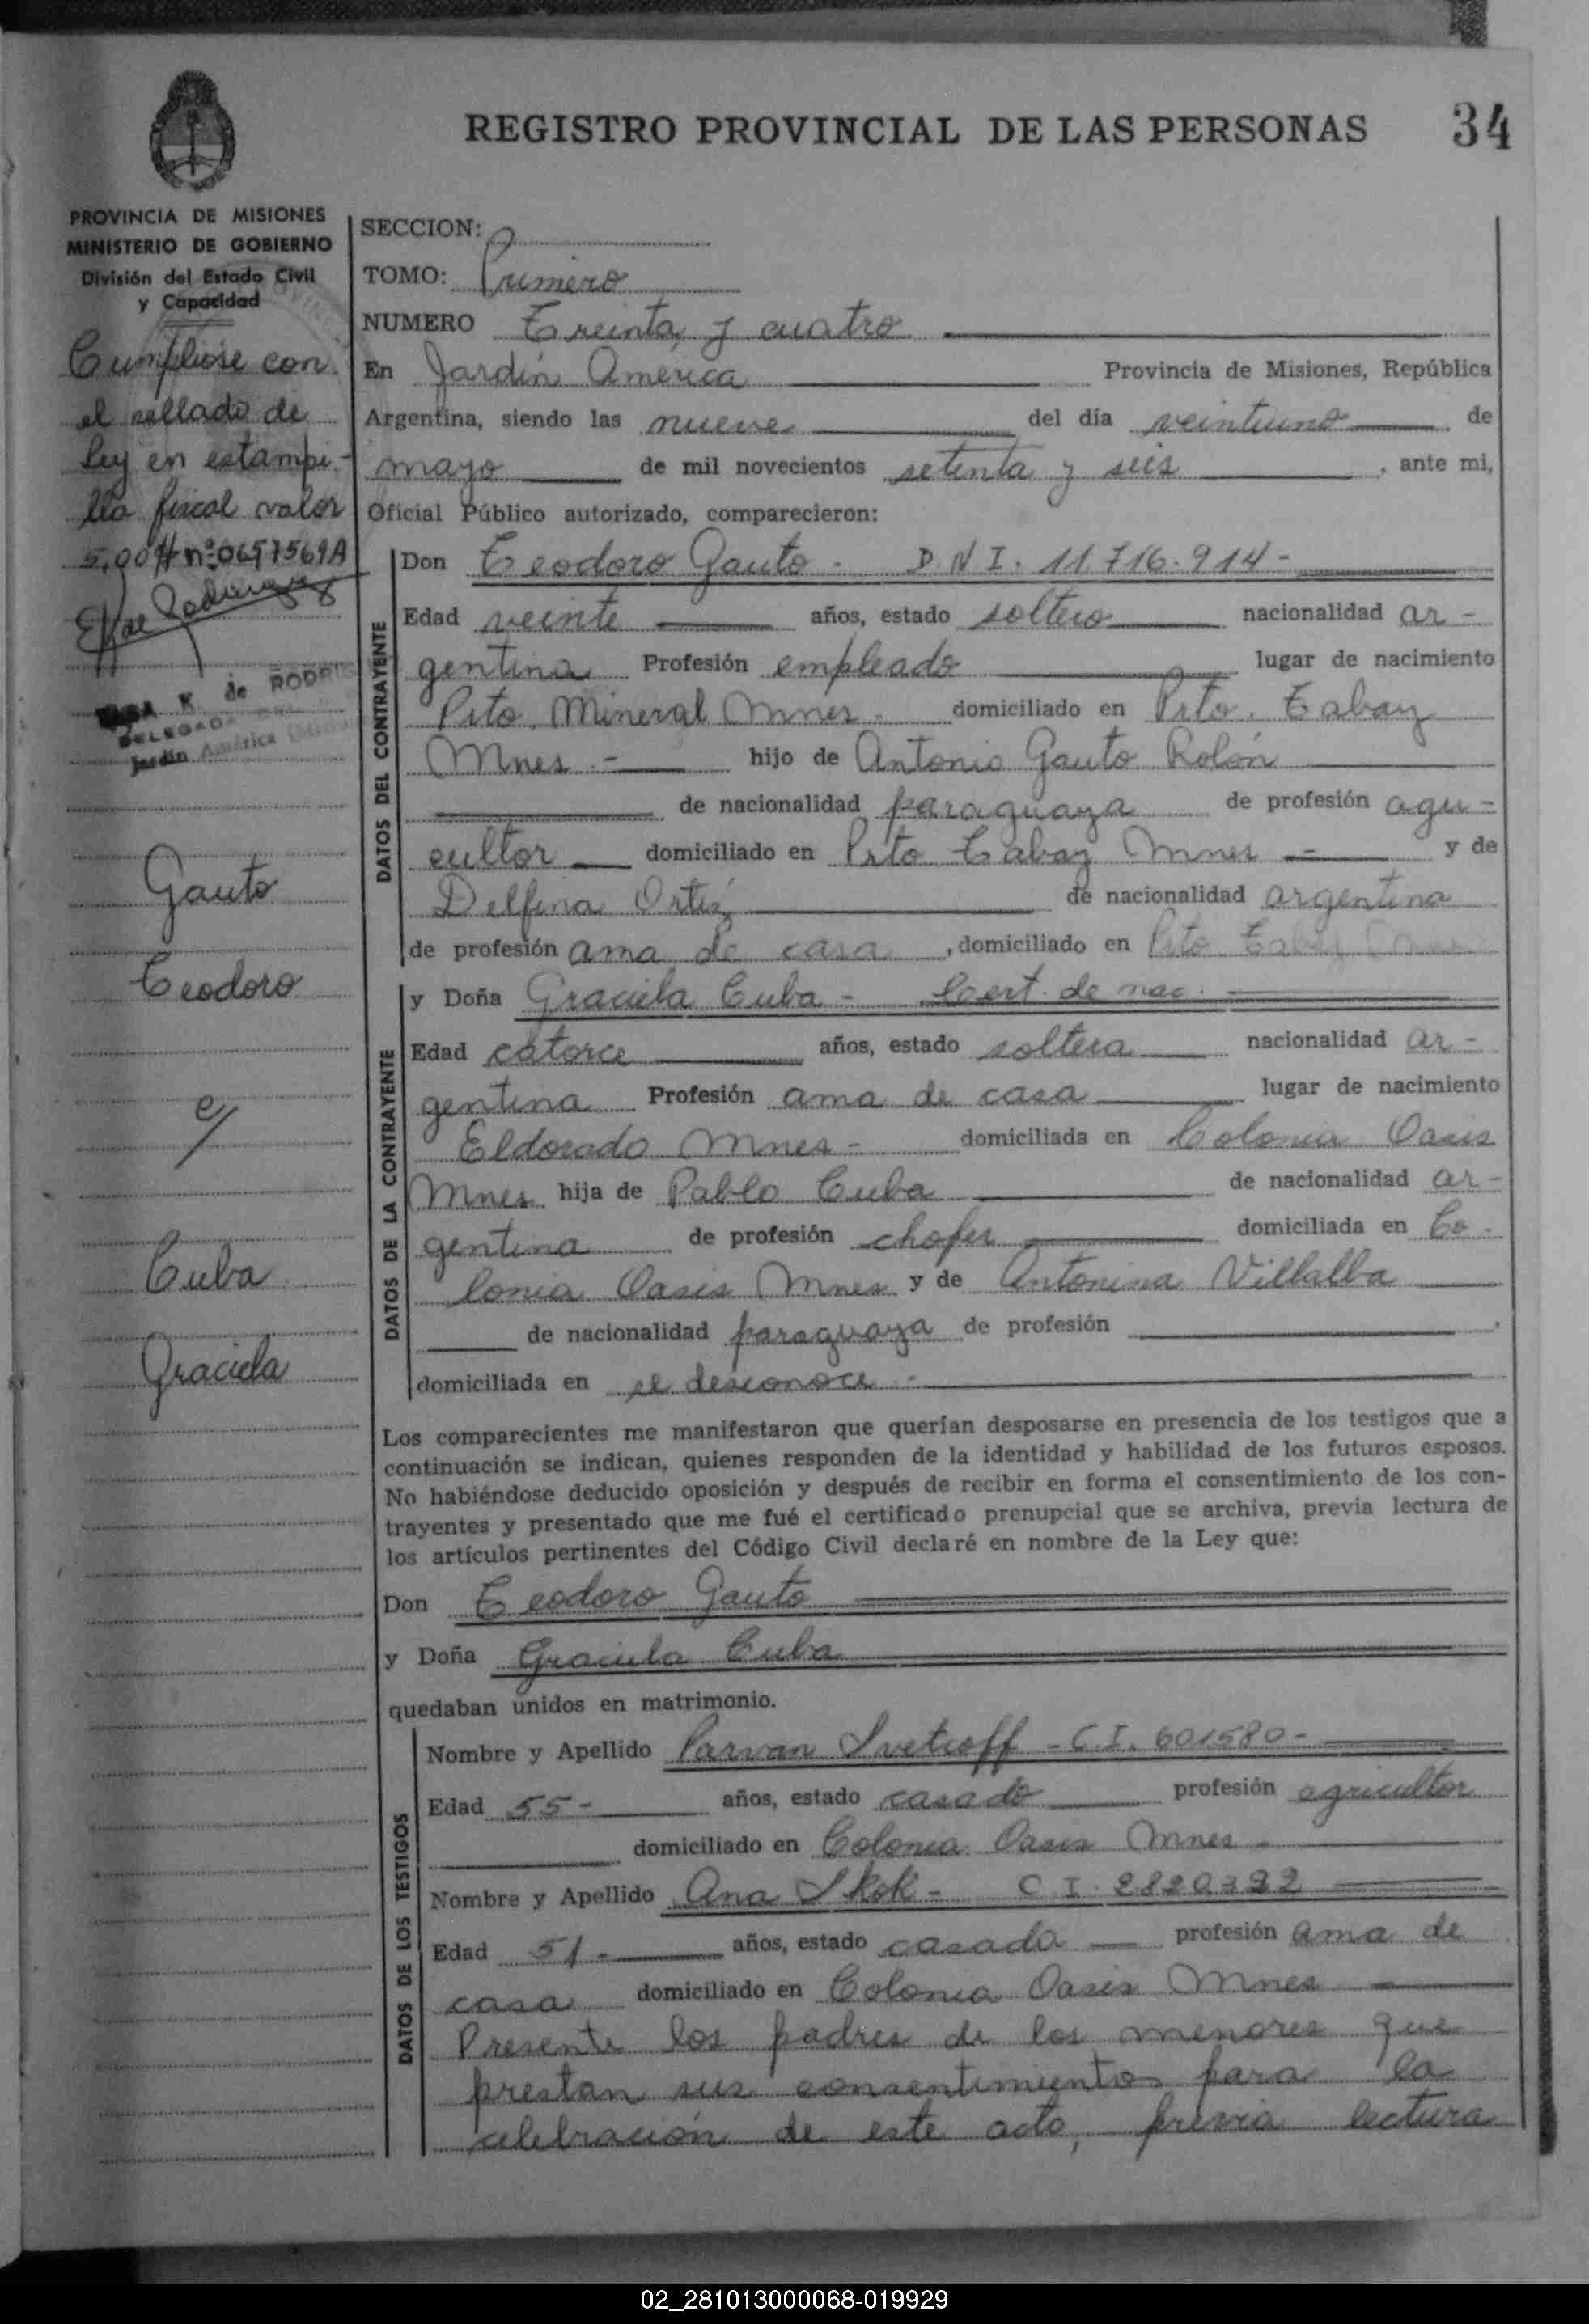 REGISTRO PROVINCIAL DE LAS PERSONAS 34
PROVINCIA DE MISIONES
MINISTERIO DE GOBIERNO
División del Estado Civil
y Capacidad
Cumpliose con
el sellado de
ley en estampi-
lla fiscal valor
5,00 $ nº 0657569A
de RODRIG
DELEGADA
Jardín América
Gauto
Teodoro
c/
Cuba
Graciela
SECCION:
TOMO: Primero
NUMERO Treinta y cuatro
En Jardín América Provincia de Misiones, República
Argentina, siendo las nueve del día veintiuno de
mayo de mil novecientos setenta y seis, ante mi,
Oficial Público autorizado, comparecieron:
DATOS DEL CONTRAYENTE
Don Teodoro Gauto - D.N.I. 11.716.914 -
Edad veinte años, estado soltero nacionalidad ar-
gentina Profesión empleado lugar de nacimiento
Pto. Mineral Mnes. domiciliado en Pto. Tabay
Mnes - hijo de Antonio Gauto Rolón
de nacionalidad paraguaya de profesión agri-
cultor domiciliado en Pto Tabay Mnes - y de
Delfina Ortíz de nacionalidad argentina
de profesión ama de casa, domiciliado en Pto Tabay Mnes
DATOS DE LA CONTRAYENTE
y Doña Graciela Cuba - Cert. de nac.
Edad catorce años, estado soltera nacionalidad ar-
gentina Profesión ama de casa lugar de nacimiento
Eldorado Mnes - domiciliada en Colonia Oasis
Mnes hija de Pablo Cuba de nacionalidad ar-
gentina de profesión chofer domiciliada en Co-
lonia Oasis Mnes y de Antonina Villalba
de nacionalidad paraguaya de profesión ,
domiciliada en se desconoce -
Los comparecientes me manifestaron que querían desposarse en presencia de los testigos que a
continuación se indican, quienes responden de la identidad y habilidad de los futuros esposos.
No habiéndose deducido oposición y después de recibir en forma el consentimiento de los con-
trayentes y presentado que me fué el certificado prenupcial que se archiva, previa lectura de
los artículos pertinentes del Código Civil declaré en nombre de la Ley que:
Don Teodoro Gauto
y Doña Graciela Cuba
quedaban unidos en matrimonio.
DATOS DE LOS TESTIGOS
Nombre y Apellido Parvan Svetcoff - C.I. 601580 -
Edad 55 - años, estado casado profesión agricultor
domiciliado en Colonia Oasis Mnes -
Nombre y Apellido Ana Skok - C.I. 2820392
Edad 51 - años, estado casada profesión ama de
casa domiciliado en Colonia Oasis Mnes
Presente los padres de los menores que
prestan sus consentimientos para la
celebración de este acto, previa lectura
02_281013000068-019929